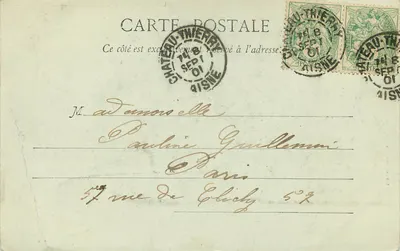 CARTE POSTALE
Ce côté est exclusivement réservé à l'adresse
CHATEAU-THIERRY
8
SEPT
01
AISNE
CHATEAU-THIERRY
8
SEPT
01
AISNE
CHATEAU-THIERRY
8
SEPT
01
AISNE
Mademoiselle
Pauline Guillemin
Paris
57 rue de Clichy 57